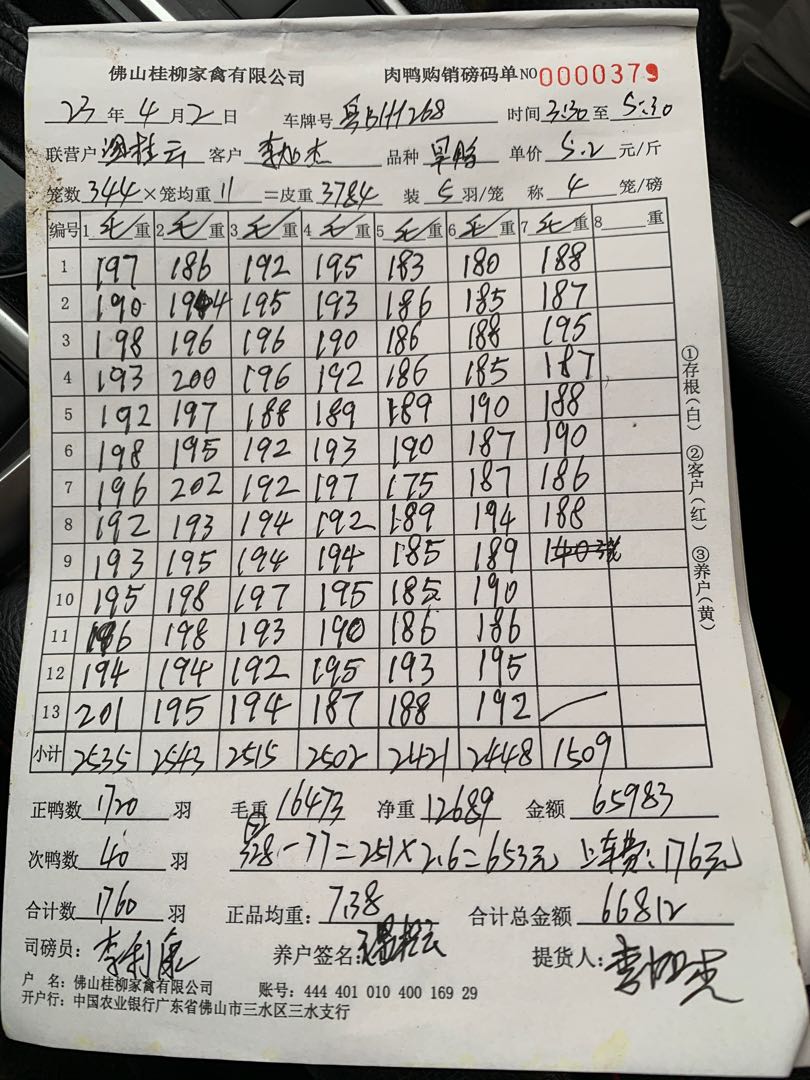 佛山桂柳家禽有限公司 肉鸭购销磅码单 NO 0000379
23年4月2日 车牌号 粤BHH268 时间 3:30 至 5:30
联营户 温桂云 客户 李旭杰 品种 单价 5.2 元/斤
笼数 344 × 笼均重 11 = 皮重 3784 装 5 羽/笼 称 4 笼/磅
编号 1 毛/重 2 毛/重 3 毛/重 4 毛/重 5 毛/重 6 毛/重 7 毛/重 8 重
1 197 186 192 195 183 180 188
2 190 194 195 193 186 185 187
3 198 196 196 190 186 188 195
4 193 200 196 192 186 185 187
5 192 197 188 189 189 190 188
6 198 195 192 193 190 187 190
7 196 202 192 197 175 187 186
8 192 193 194 192 189 194 188
9 193 195 194 194 185 189
10 195 198 197 195 185 190
11 196 198 193 190 186 186
12 194 194 192 195 193 195
13 201 195 194 187 188 192
小计 2535 2543 2515 2502 2421 2448 1509
正鸭数 1720 羽 毛重 16473 净重 12689 金额 65983
次鸭数 40 羽 328-77=251×2.6=653元 上车费:176元
合计数 1760 羽 正品均重: 7.38 合计总金额 66812
司磅员: 李利康 养户签名: 温桂云 提货人: 李旭杰
户 名: 佛山桂柳家禽有限公司 账号: 444 401 010 400 169 29
开户行: 中国农业银行广东省佛山市三水区三水支行
①存根(白) ②客户(红) ③养户(黄)